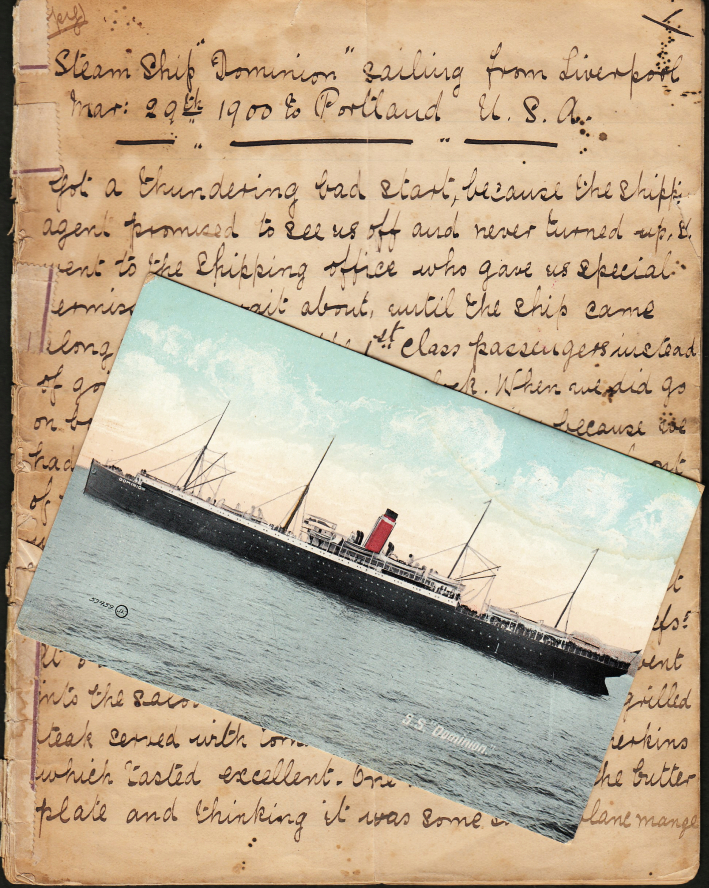 Steam Ship "Dominion" sailing from Liverpool
Mar: 29th 1900 to Portland U. S. A.
Got a thundering bad start, because the shipp:
agent promised to see us off and never turned up, &
went to the shipping office who gave us special
ait about, until the ship came
along 1st Class passengers instead
of go . When we did go
on b because we
had out
of
t
went
into the saloo grilled
steak served with tom gherkins
which tasted excellent. One the butter
plate and thinking it was some blanc mange
DOMINION
57459
S.S. Dominion."